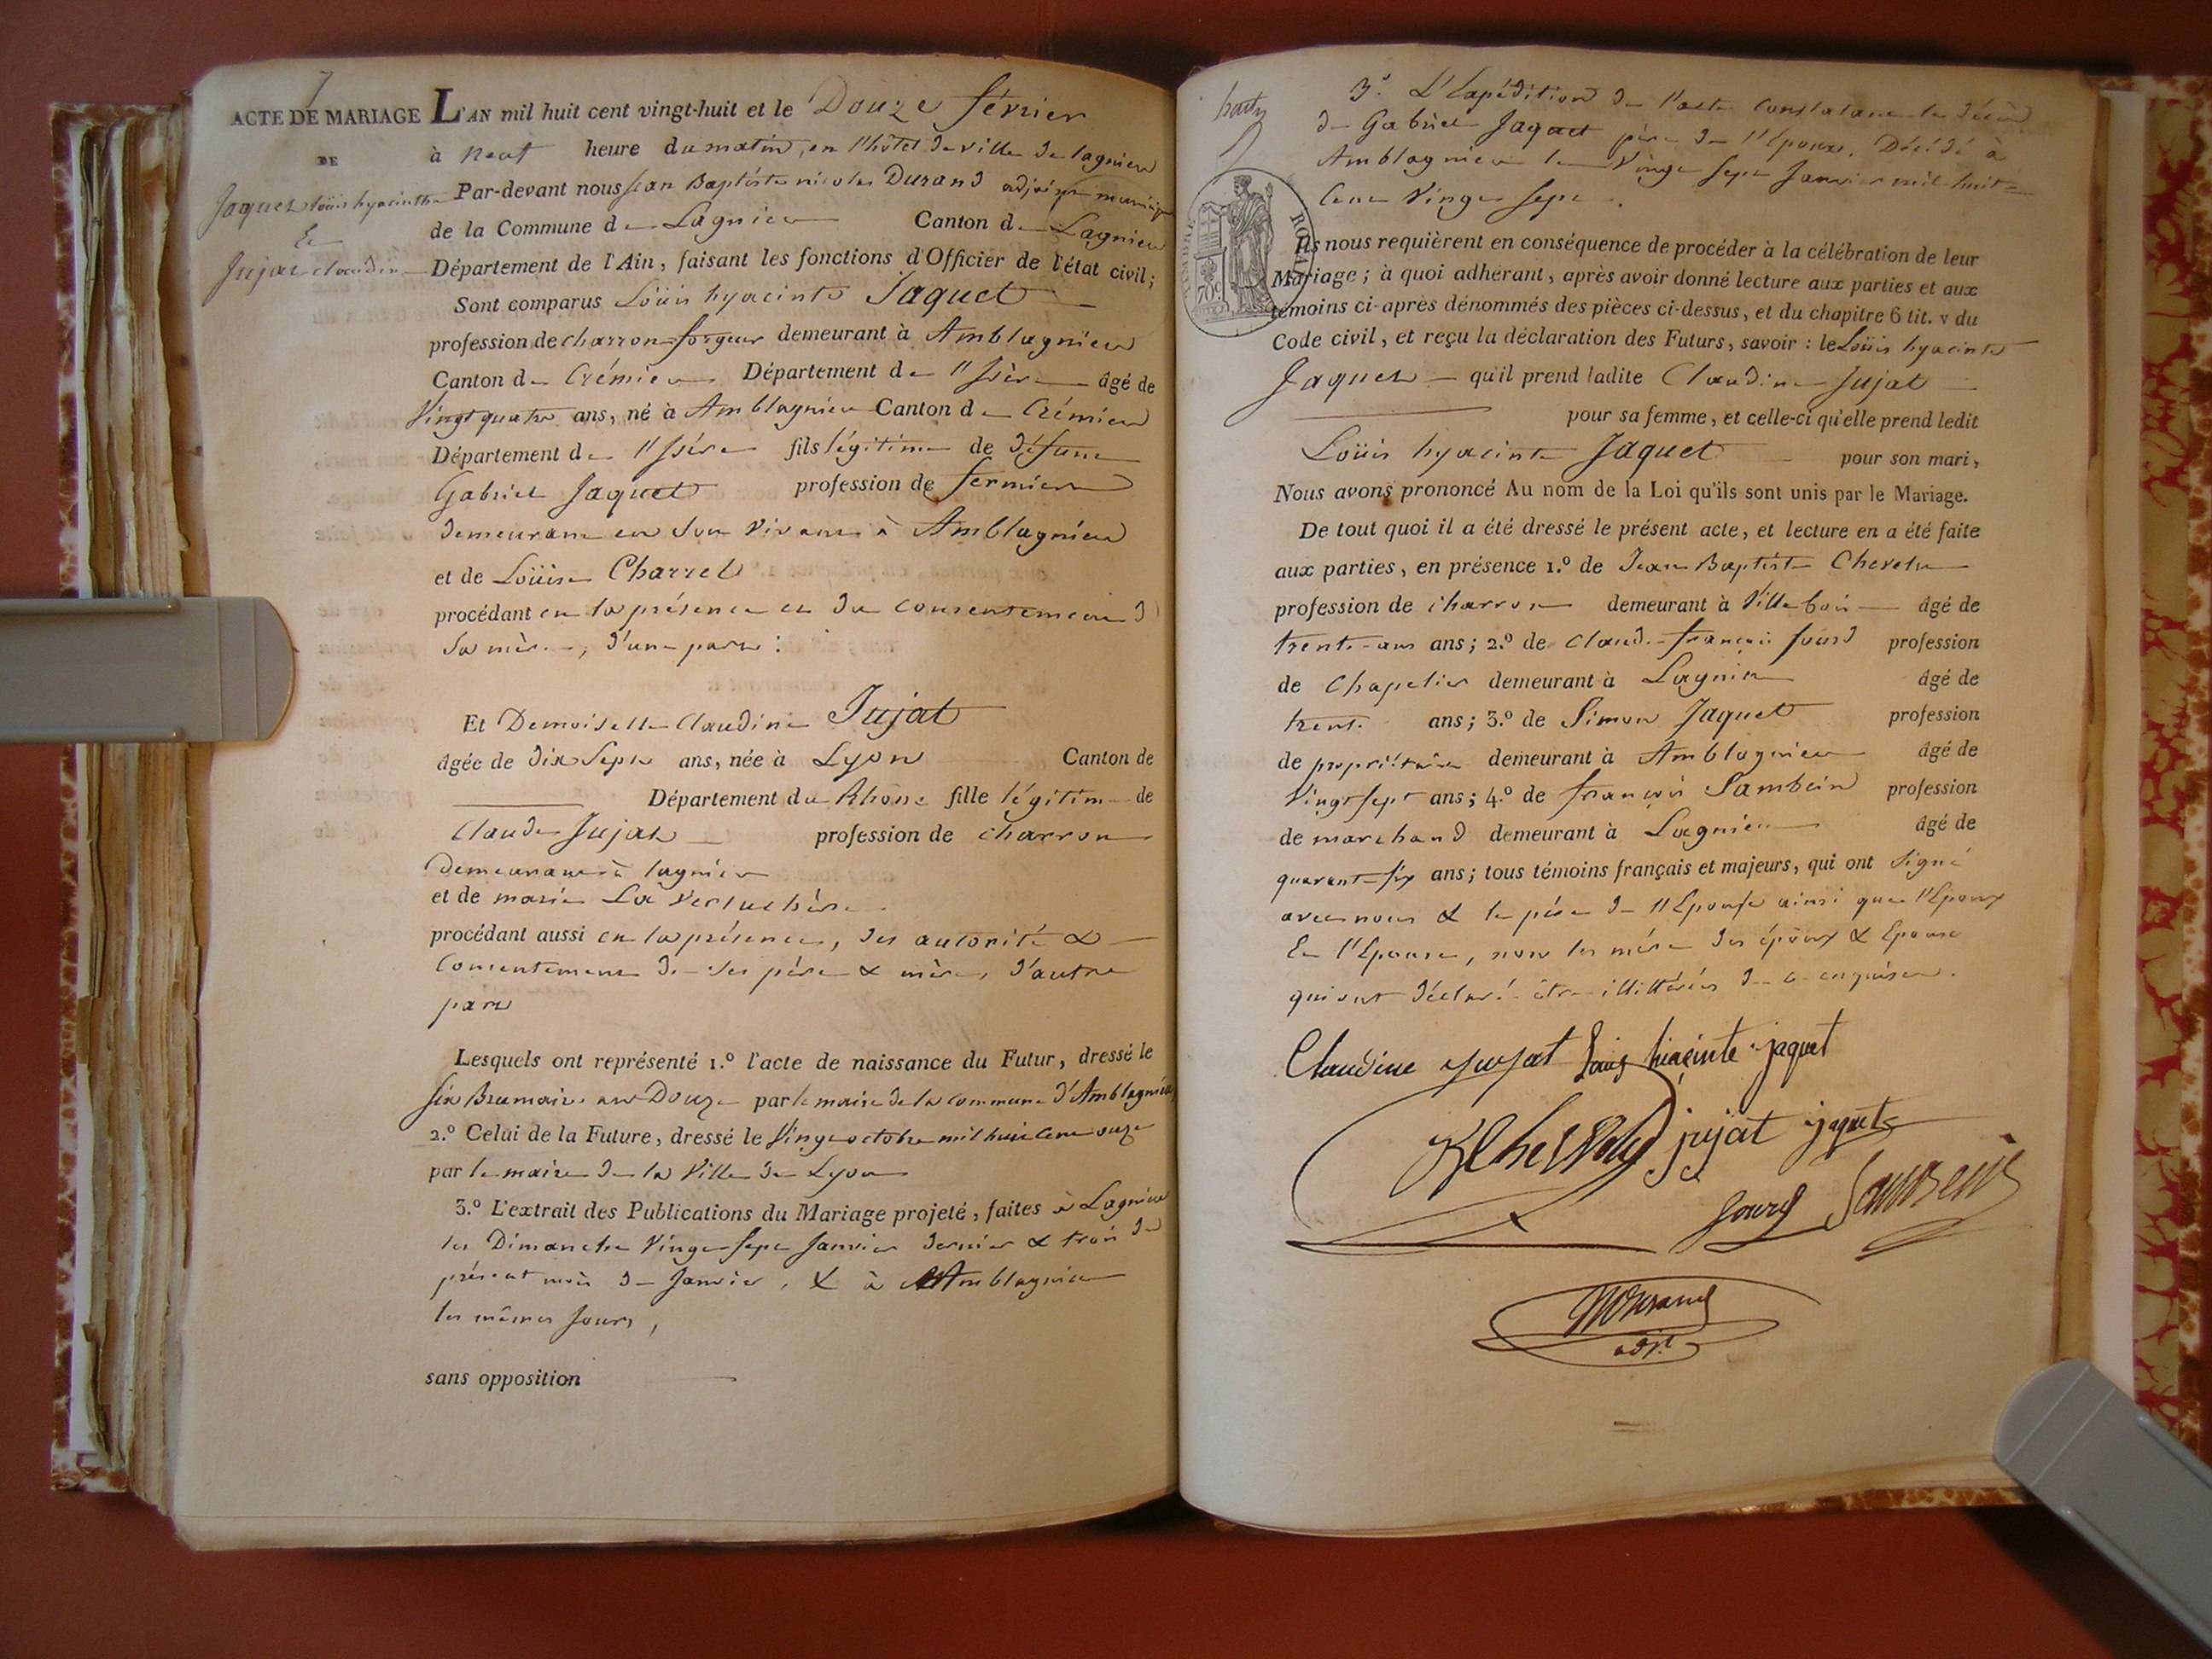 7
ACTE DE MARIAGE
DE
Jaquet Loüis hyacinthe
Et
Jujat Claudine
L'AN mil huit cent vingt-huit et le Douze février
à neuf heure du matin, en l'hôtel de ville de lagnieu
Par-devant nous jean Baptiste nicolas Durand adjoint
de la Commune de Lagnieu Canton de Lagnieu
Département de l'Ain, faisant les fonctions d'Officier de l'état civil;
Sont comparus Loüis hyacinte Jaquet
profession de charron forgeur demeurant à Amblagnieu
Canton de Crémieu Département de l'Isère âgé de
Vingt quatre ans, né à Amblagnieu Canton de Crémieu
Département de l'Isére fils légitime de défunt
Gabriel Jaquet profession de fermier
demeurant en son vivant à Amblagnieu
et de Loüise Charrel
procédant en la présence et du consentement de
sa mère, d'une part :
Et Demoiselle Claudine Jujat
âgée de dix Sept ans, née à Lyon Canton de
Département du Rhône fille légitime de
Claude Jujat profession de charron
demeurant à lagnieu
et de marie La
procédant aussi en la présence, des autorité &
Consentement de ses pére & mère, d'autre
part
Lesquels ont représenté 1.º l'acte de naissance du Futur, dressé le
six Brumaire an Douze par le maire de la commune d'Amblagnieu
2.º Celui de la Future, dressé le Vingt octobre mil huit cent onze
par le maire de la Ville de Lyon
3.º L'extrait des Publications du Mariage projeté, faites à Lagnieu
les Dimanche Vingt sept Janvier dernier & trois du
présent mois de Janvier, & à Amblagnieu
les mêmes jours,
sans opposition
3.º L'Expédition de l'acte Constatant le décès
de Gabriel Jaquet père de l'Epoux. Décédé à
Amblagnieu le Vingt Sept Janvier mil huit
Cent Vingt sept.
TIMBRE ROYAL
70c
Ils nous requièrent en conséquence de procéder à la célébration de leur
Mariage; à quoi adhérant, après avoir donné lecture aux parties et aux
témoins ci-après dénommés des pièces ci-dessus, et du chapitre 6 tit. v du
Code civil, et reçu la déclaration des Futurs, savoir : le Loüis hyacinte
Jaquet qu'il prend ladite Claudine Jujat
pour sa femme, et celle-ci qu'elle prend ledit
Loüis hyacinte Jaquet pour son mari,
Nous avons prononcé Au nom de la Loi qu'ils sont unis par le Mariage.
De tout quoi il a été dressé le présent acte, et lecture en a été faite
aux parties, en présence 1.º de Jean Baptiste Chevelu
profession de charron demeurant à Villebois âgé de
trente ans; 2.º de Claude françois jourd profession
de Chapelier demeurant à Lagnieu âgé de
trente ans; 3.º de Simon Jaquet profession
de propriétaire demeurant à Amblagnieu âgé de
Vingt sept ans; 4.º de françois Sambein profession
de marchand demeurant à Lagnieu âgé de
quarante six ans; tous témoins français et majeurs, qui ont signé
avec nous & le pére de l'Epouse ainsi que l'Epoux
Et l'Epouse, non les mére des époux & Epouse
qui ont déclaré être illittérées de ce enquises.
Claudine jujat Louis hiacinte jaquet
jujat jaquet
jourd Sambein
Durand
adjt